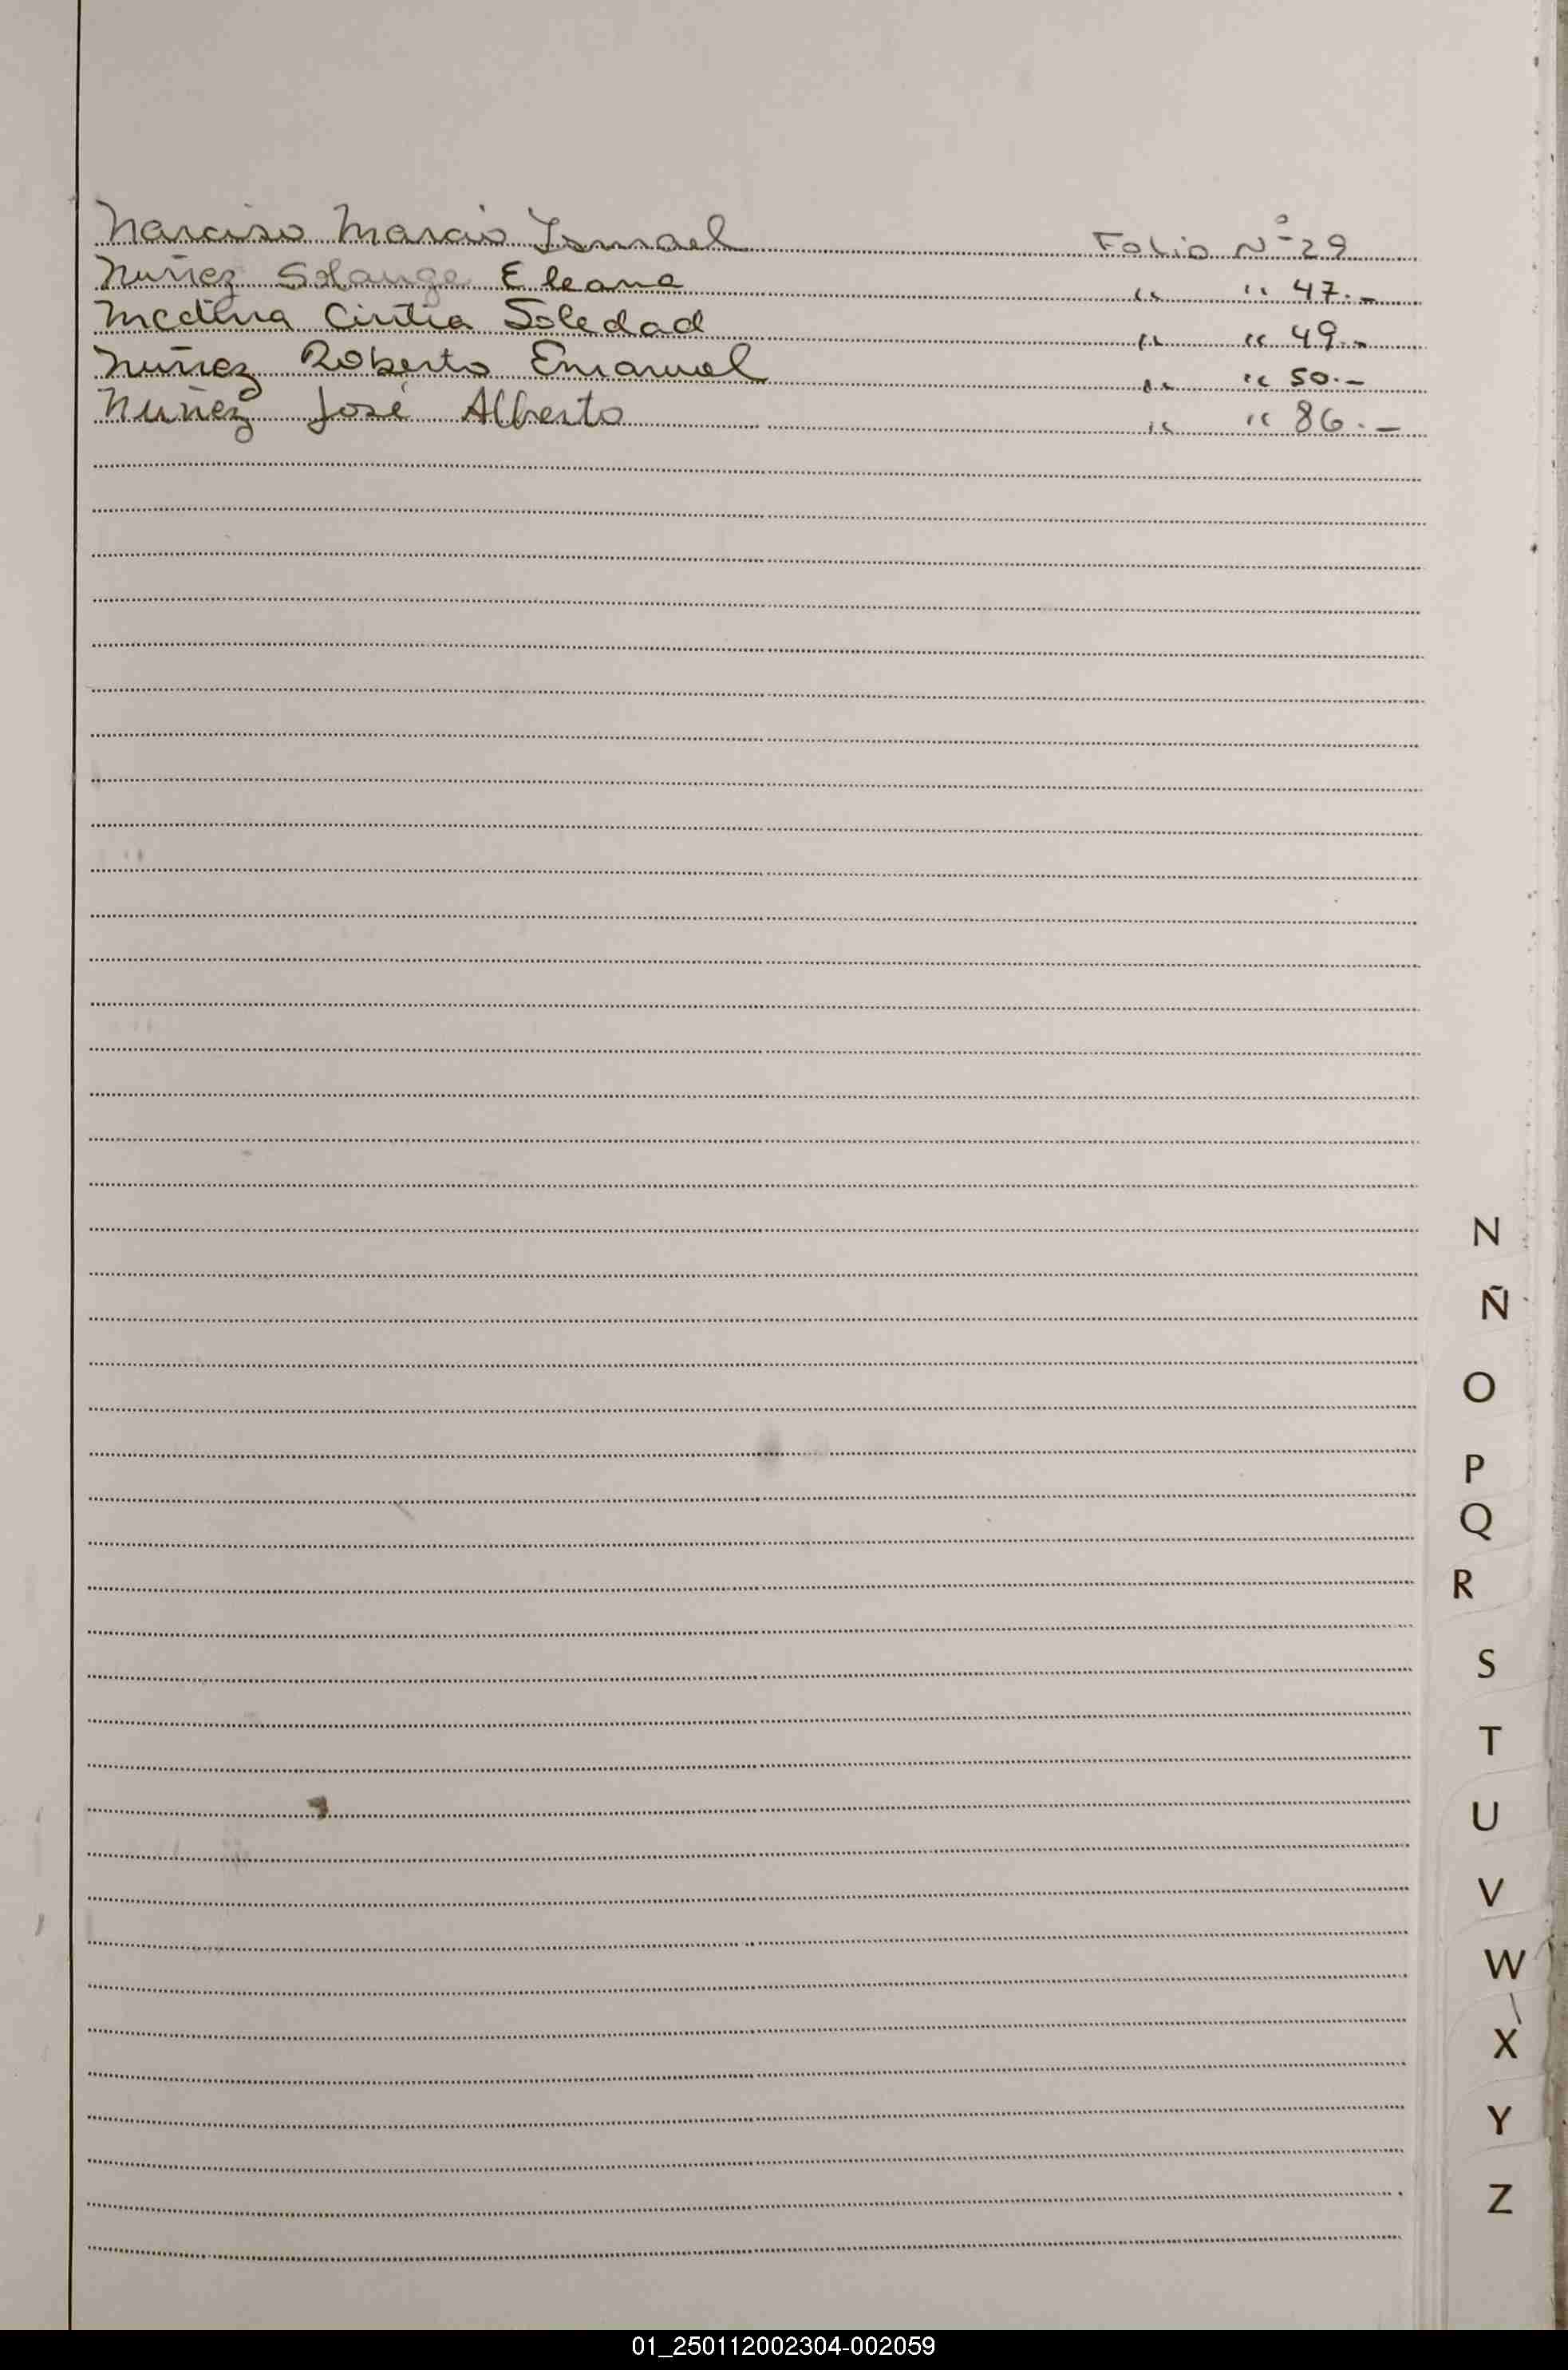 Narciso Marcio Ismael Folio Nº 29
Nuñez Solange Eleana " " 47.-
Medina Cintia Soledad " " 49.-
Nuñez Roberto Emanuel " " 50.-
Nuñez José Alberto " " 86.-
N
Ñ
O
P
Q
R
S
T
U
V
W
X
Y
Z
01_250112002304-002059